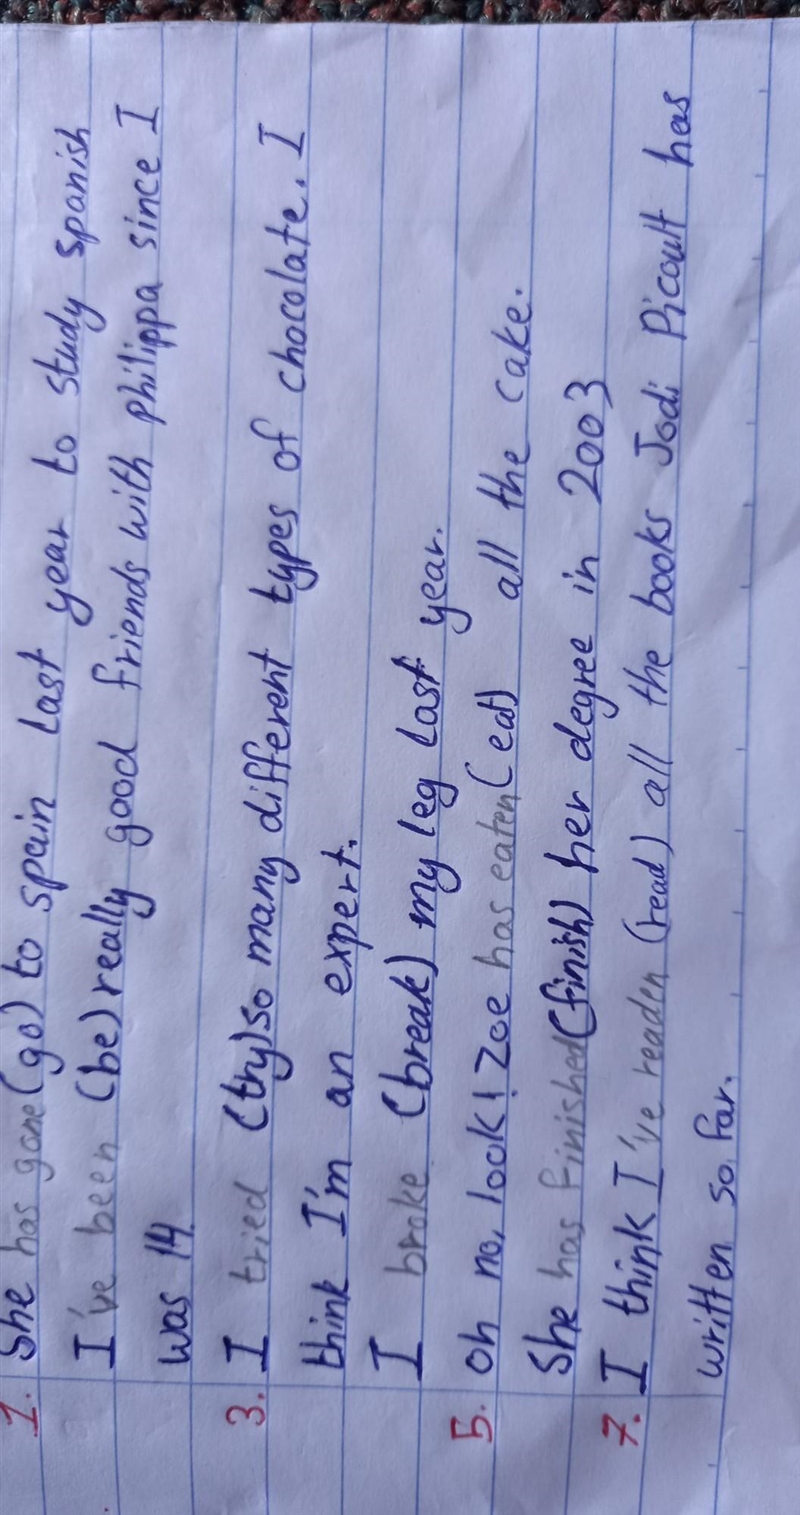 1. She has gone (go) to spain last year to study spanish
I've been (be) really good friends with philippa since I
was 14.
3. I tried (try) so many different types of chocolate. I
think I'm an expert.
I broke (break) my leg last year.
5. Oh no, look! Zoe has eaten (eat) all the cake.
She has finished (finish) her degree in 2003
7. I think I've readen (read) all the books Jodi Picoult has
written so far.